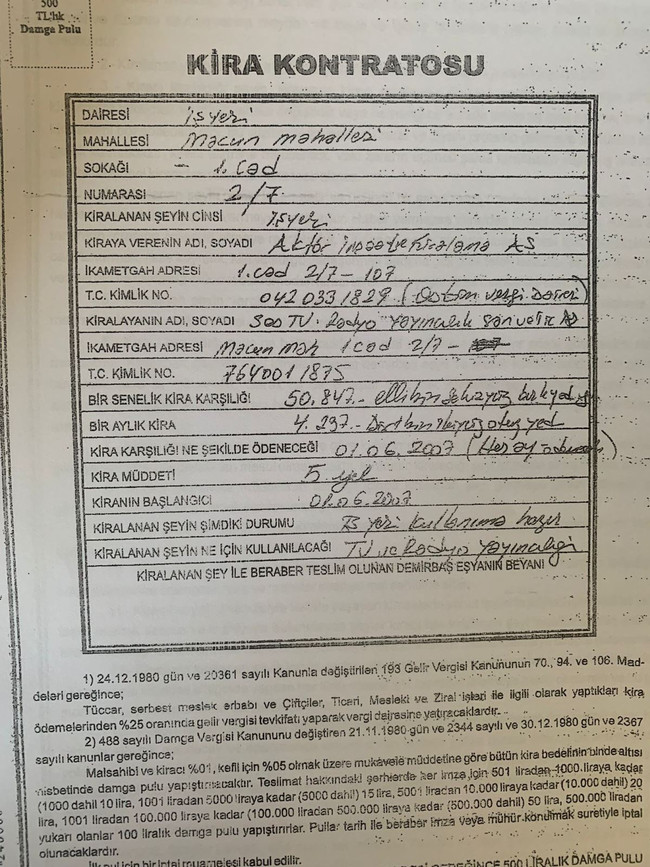 500
TL'lık
Damga Pulu
KİRA KONTRATOSU
DAİRESİ işyeri
MAHALLESİ Macun mahallesi
SOKAĞI - 1. Cad
NUMARASI 2/7
KİRALANAN ŞEYİN CİNSİ İşyeri
KİRAYA VERENİN ADI, SOYADI Aktör İnşaat ve Kiralama AŞ
İKAMETGAH ADRESİ 1. cad 2/7 - 107
T.C. KİMLİK NO. 042 033 1829 (Ostim vergi Dairesi)
KİRALAYANIN ADI, SOYADI TV. Radyo Yayıncılık San ve Tic AŞ
İKAMETGAH ADRESİ Macun Mah 1 cad 2/7 -
T.C. KİMLİK NO. 764001 1875
BİR SENELİK KİRA KARŞILIĞI 50.847.- ellibin sekizyüz kırkyedi
BİR AYLIK KİRA 4.237.- Dörtbin ikiyüz otuz yedi
KİRA KARŞILIĞI NE ŞEKİLDE ÖDENECEĞİ 01.06.2007 (Her ay
KİRA MÜDDETİ 5 yıl
KİRANIN BAŞLANGICI 01.06.2007
KİRALANAN ŞEYİN ŞİMDİKİ DURUMU İş yeri kullanıma hazır
KİRALANAN ŞEYİN NE İÇİN KULLANILACAĞI TV ve Radyo Yayıncılığı
KİRALANAN ŞEY İLE BERABER TESLİM OLUNAN DEMİRBAŞ EŞYANIN BEYANI
1) 24.12.1980 gün ve 20361 sayılı Kanunla değiştirilen 193 Gelir Vergisi Kanununun 70., 94. ve 106. Mad-
deleri gereğince;
Tüccar, serbest meslek erbabı ve Çiftçiler, Ticari, Mesleki ve Zirai işleri ile ilgili olarak yaptıkları kira
ödemelerinden %25 oranında gelir vergisi tevkifatı yaparak vergi dairesine yatıracaklardır.
2) 488 sayılı Damga Vergisi Kanununu değiştiren 21.11.1980 gün ve 2344 sayılı ve 30.12.1980 gün ve 2367
sayılı kanunlar gereğince;
Malsahibi ve kiracı %01, kefil için %05 olmak üzere mukavele müddetine göre bütün kira bedelinin binde altısı
nisbetinde damga pulu yapıştırılacaktır. Teslimat hakkındaki şerhlerde her imza için 501 liradan 1000 liraya kadar
(1000 dahil 10 lira, 1001 liradan 5000 liraya kadar (5000 dahil) 15 lira, 5001 liradan 10.000 liraya kadar (10.000 dahil) 20
lira, 1001 liradan 100.000 liraya kadar (100.000 liradan 500.000 liraya kadar (500.000 dahil) 50 lira, 500.000 liradan
yukarı olanlar 100 liralık damga pulu yapıştırırlar. Pullar tarih ile beraber imza veya mühür konulmak suretiyle iptal
olunacaklardır.
kabul edilir.
GEREĞİNCE 500 LİRALIK DAMGA PULU